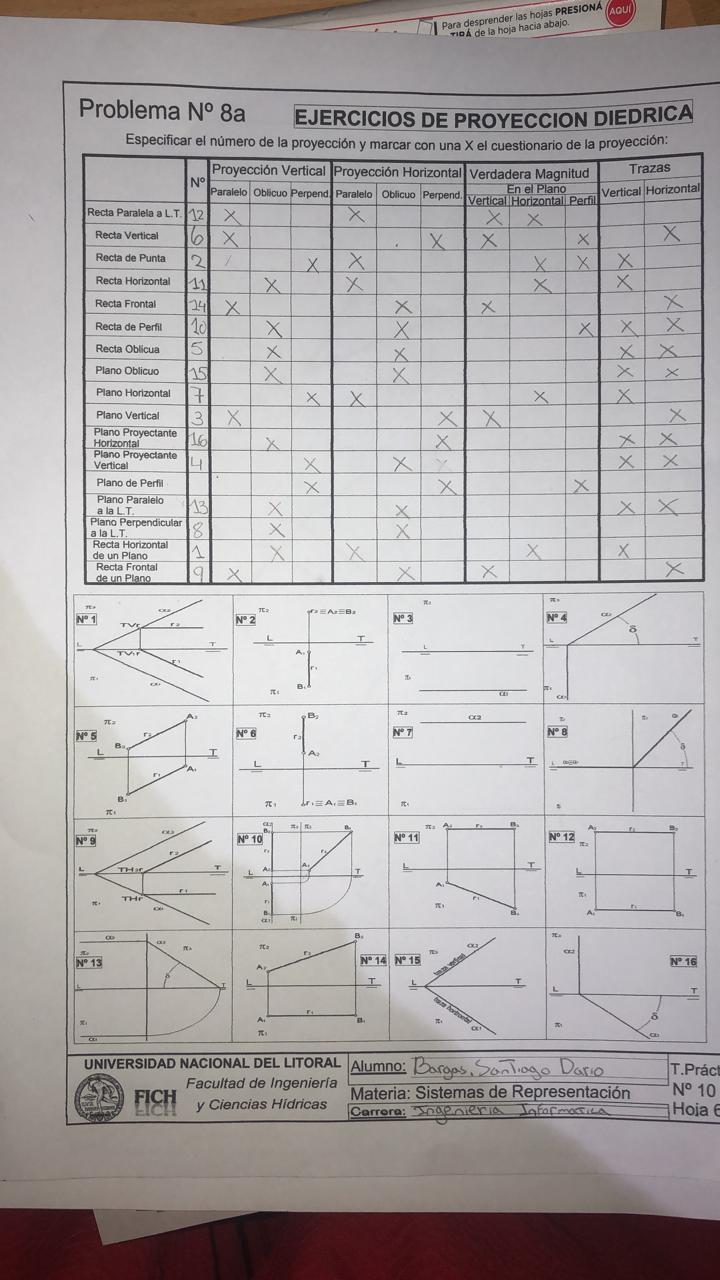 Para desprender las hojas PRESIONÁ AQUÍ
TIRÁ de la hoja hacia abajo.
Problema Nº 8a EJERCICIOS DE PROYECCION DIEDRICA
Especificar el número de la proyección y marcar con una X el cuestionario de la proyección:
Nº Proyección Vertical Proyección Horizontal Verdadera Magnitud Trazas
En el Plano
Paralelo Oblicuo Perpend. Paralelo Oblicuo Perpend. Vertical Horizontal Perfil Vertical Horizontal
Recta Paralela a L.T. 12 X X X X
Recta Vertical 6 X X X X X
Recta de Punta 2 X X X X X
Recta Horizontal 11 X X X X
Recta Frontal 14 X X X X
Recta de Perfil 10 X X X X X
Recta Oblicua 5 X X X X
Plano Oblicuo 15 X X X X
Plano Horizontal 7 X X X X
Plano Vertical 3 X X X X
Plano Proyectante
Horizontal 16 X X X X
Plano Proyectante
Vertical 4 X X X X
Plano de Perfil X X X
Plano Paralelo
a la L.T. 13 X X X X
Plano Perpendicular
a la L.T. 8 X X
Recta Horizontal
de un Plano 1 X X X X
Recta Frontal
de un Plano 9 X X X X
Nº 1 π2 α2 TVr r2 L T TV1r r1 π1 α1
Nº 2 π2 r2≡A2≡B2 L T A1 r1 B1 π1
Nº 3 π2 L T π1 α1
Nº 4 π2 α2 δ L T π1 α1
Nº 5 π2 A2 r2 B2 L T A1 r1 B1 π1
Nº 6 π2 B2 r2 A2 L T π1 r1≡A1≡B1
Nº 7 π2 α2 L T π1
Nº 8 δ L T
Nº 9 π2 α2 r2 L TH2r T THr r1 π1 α1
Nº 10 π2 π3 B2 B3 r2 r3 A2 A3 L T A1 r1 B1 π1
Nº 11 π2 A2 r2 B2 L T A1 r1 B1 π1
Nº 12 A2 r2 B2 π2 L T π1 A1 r1 B1
Nº 13 α2 α3 π2 π3 δ L T π1 α1
Nº 14 π2 B2 r2 A2 L T A1 r1 B1 π1
Nº 15 π2 α2 traza vertical L T traza horizontal π1 α1
Nº 16 π2 α2 L T δ π1 α1
UNIVERSIDAD NACIONAL DEL LITORAL
FICH
Facultad de Ingeniería
y Ciencias Hídricas
Alumno: Bargas, Santiago Dario
Materia: Sistemas de Representación
Carrera: Ingenieria Informatica
T.Práct
Nº 10
Hoja 6